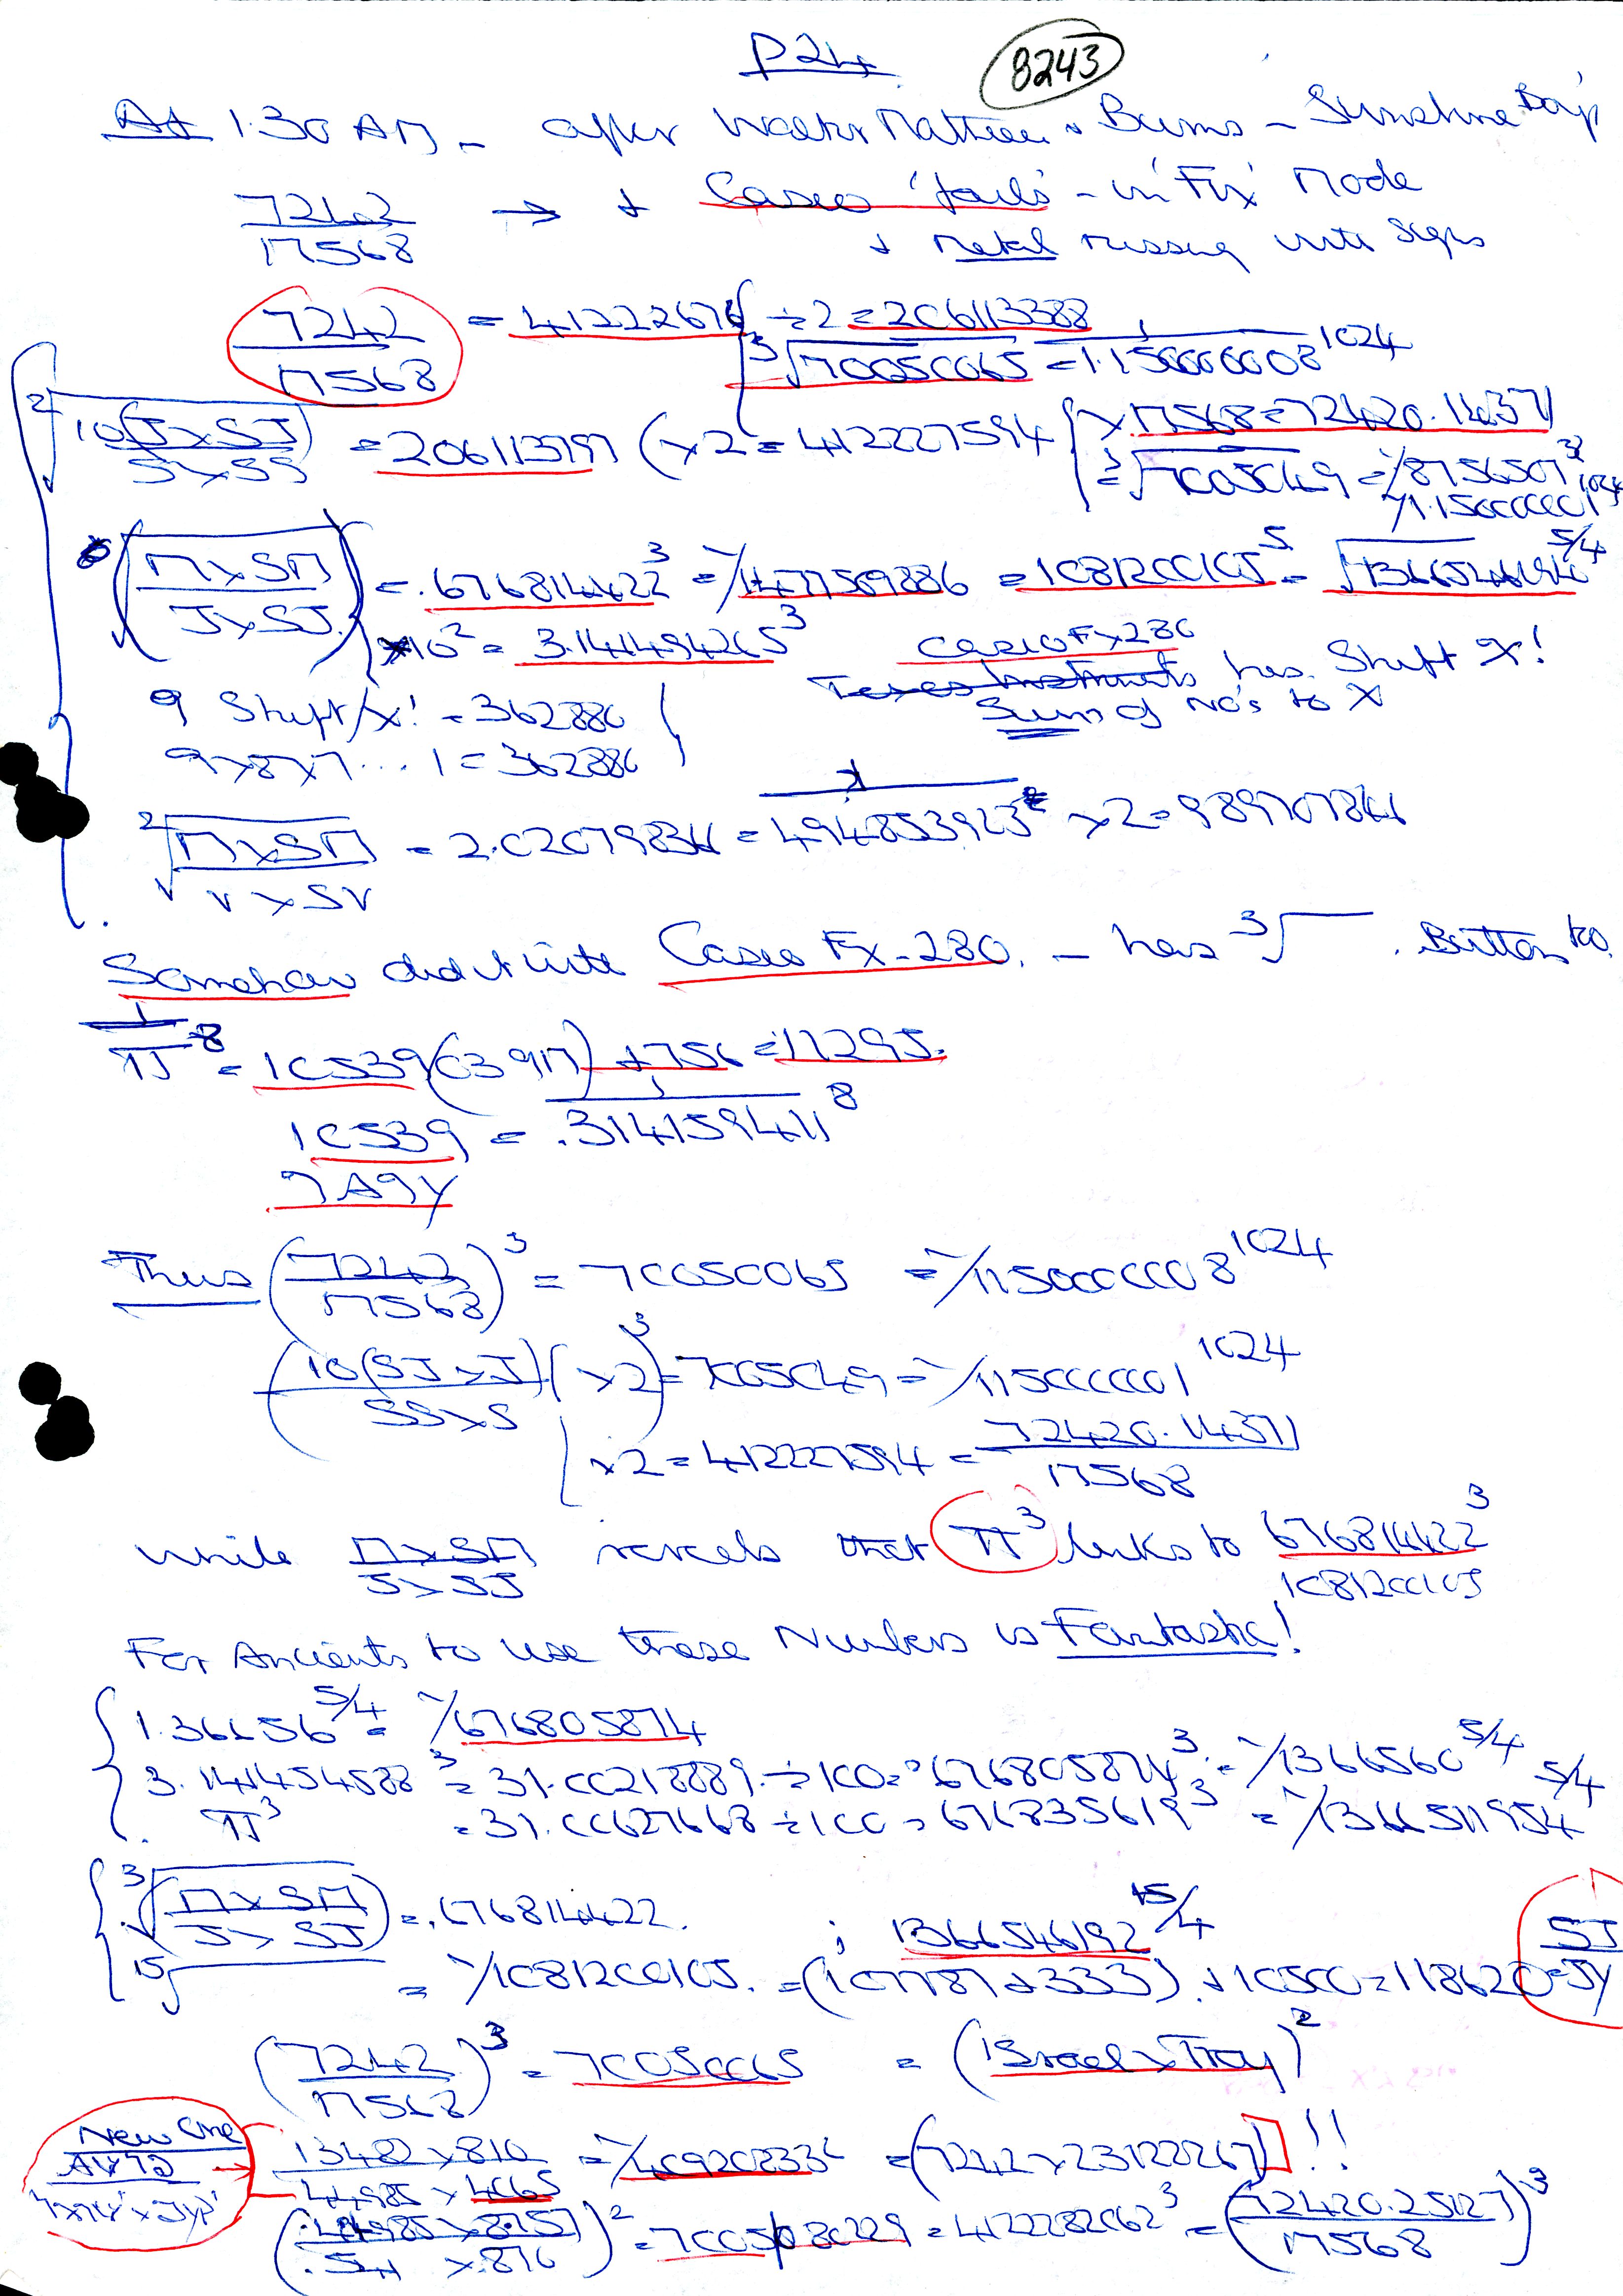 P24
8243
At 1.30 AM - after Walter Matthau & Burns - Sunshine Boys
7242 / 17568 → & Casio 'fails' - in 'Fix' Mode
& Metal missing into Sigs
7242 / 17568 = 412226776 ÷ 2 = 206113388
3√70050065 = 1/1.150000008^1024
2√10(J×SJ) / S×SS = 206113797 (×2 = 412227594 × 17568 = 72420.14371
= 3√7005049 = 1/8756507^3
1/1.150000001^1024
(M×SM / J×SJ) = .676814422^3 = 1/1477509886 = 1081200105^5 = √1366546194^5/4
×10^2 = 3.141494265^3
Casio FX280
Texas Instruments has Shift X!
Sum of No's to X
9 Shift/X! = 362880
9×8×7...1 = 362880
2√M×SM / V×SV = 2.02079834 = 1/494853923^2 ×2 = 989707844
Somehow did it with Casio FX-280. - has 3√ . Button too.
1/π^8 = 10539(03917) + 756 = 11295.
10539 = 1/.314159411^8
7A9Y
Thus (7242 / 17568)^3 = 70050065 = 1/1150000008^1024
(10(SJ×J) / SS×S (×2)^3 = 7005049 = 1/1150000001^1024
×2 = 412227594 = 72420.14371 / 17568
while M×SM / J×SJ reveals that π^3 links to 676814422^3
1081200105
For Ancients to use these Numbers is Fantastic!
1.36656^5/4 = 1/676805874
3.141454588^3 = 31.00218889 ÷ 100 = .676805874^3 = 1/1366560^5/4
π^3 = 31.00627668 ÷ 100 = 676835619^3 = 1/1366511954^5/4
3√(M×SM / J×SJ) = .676814422.
15√ = 1/1081200105. = 1/1366546192^15/4 = (107787+333) + 10500 = 118620 = SJ / JY
(7242 / 17568)^3 = 70050065 = (Israel×Troy)^2
New One
13482×810 / 44985×4065 = 1/409202333 = (7242×23122267)!!
(.44985×8757 / .54 ×.876)^2 = 7005080229 = 4122282062^3 = (72420.25127 / 17568)^3